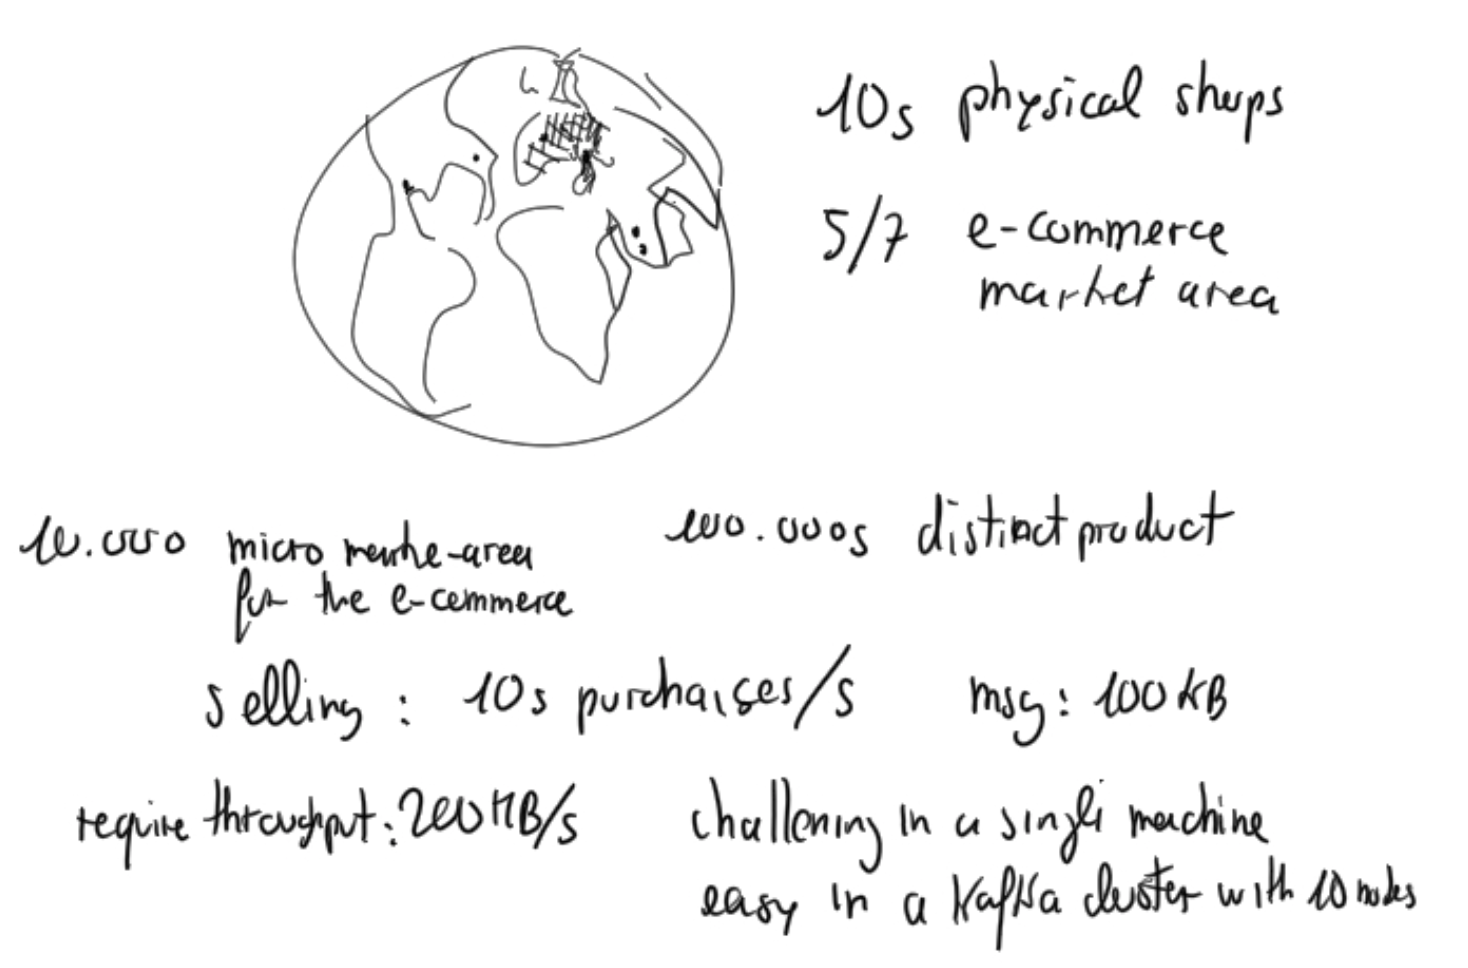 10s physical shops
5/7 e-commerce
market area
10.000 micro marke-area
for the e-commerce
100.000s distinct product
selling: 10s purchaises/s
msg: 100KB
require throughput: 200MB/s
challening in a single machine
easy in a Kafka cluster with 10 nodes